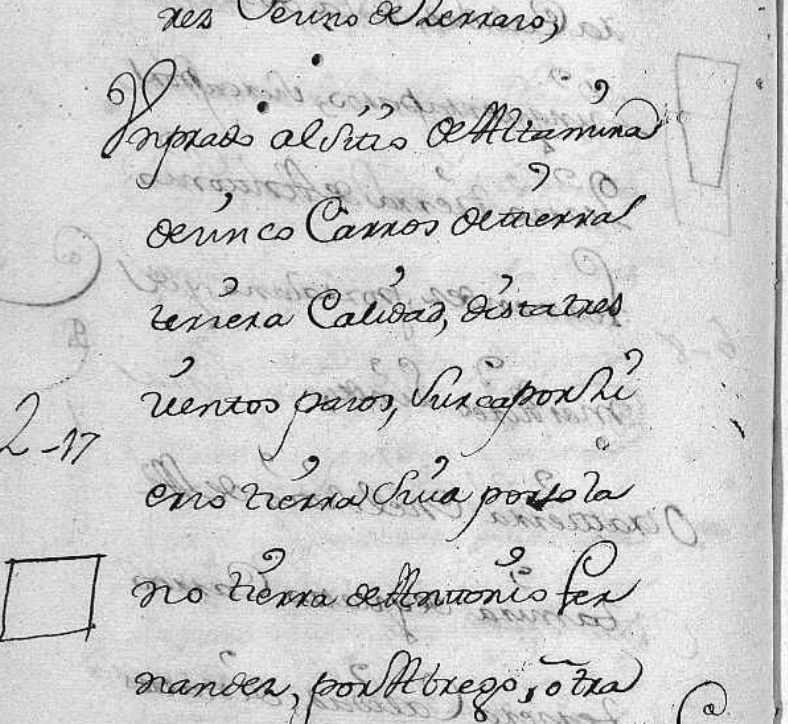 rez Vecino de Herraro,
Vnprado alsitio de Altamira
decinco Carros detierra
tercera Calidad, distatres
cientos pasos, surcaporZi
erzo tierra suia porsola
2-17
no tierra de Antonio fer
nandez, porAbrego, otra